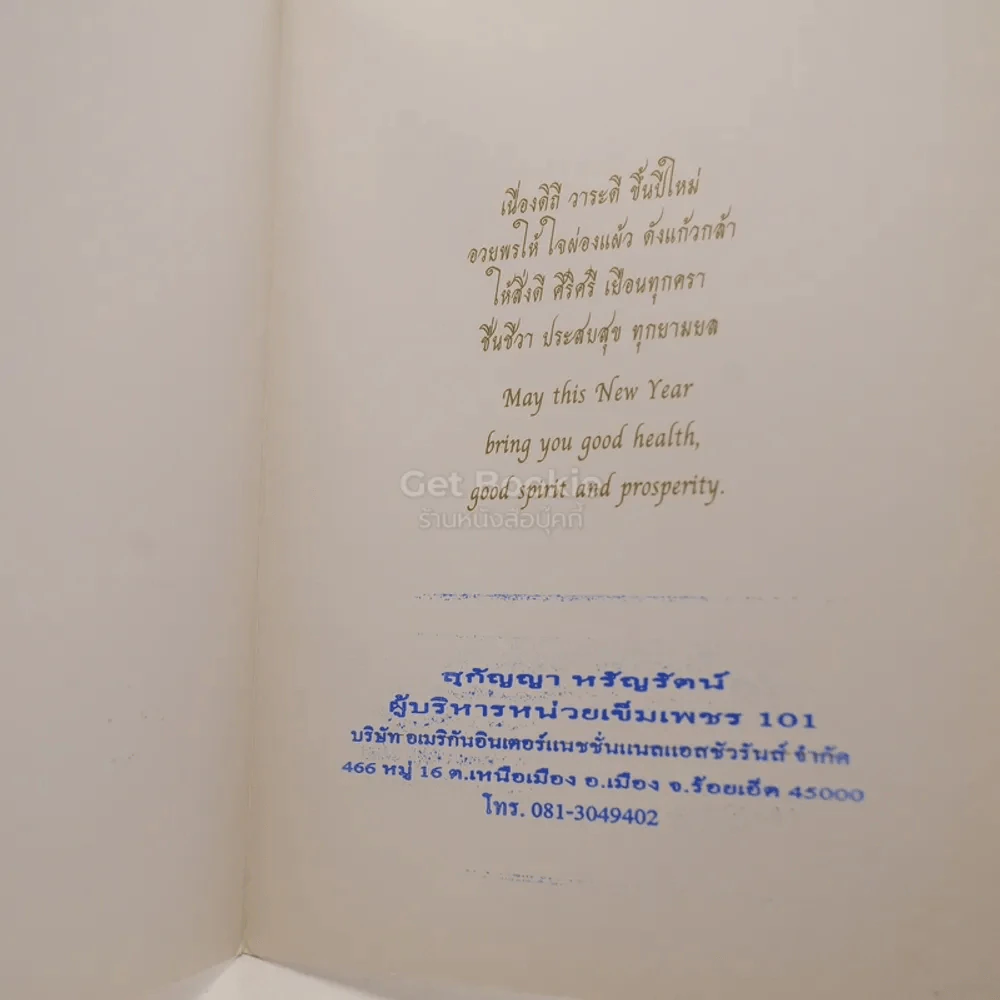 เนื่องดิถี วาระดี ขึ้นปีใหม่
อวยพรให้ ใจผ่องแผ้ว ดังแก้วกล้า
ให้สิ่งดี ศิริศรี เยือนทุกครา
ชื่นชีวา ประสบสุข ทุกยามยล
May this New Year
bring you good health,
good spirit and prosperity.
Get Bookie
ร้านหนังสือบุ๊คกี้
สุกัญญา หรัญรัตน์
ผู้บริหารหน่วยเข็มเพชร 101
บริษัท อเมริกันอินเตอร์แนชชั่นแนลแอสชัวรันส์ จำกัด
466 หมู่ 16 ต.เหนือเมือง อ.เมือง จ.ร้อยเอ็ด 45000
โทร. 081-3049402